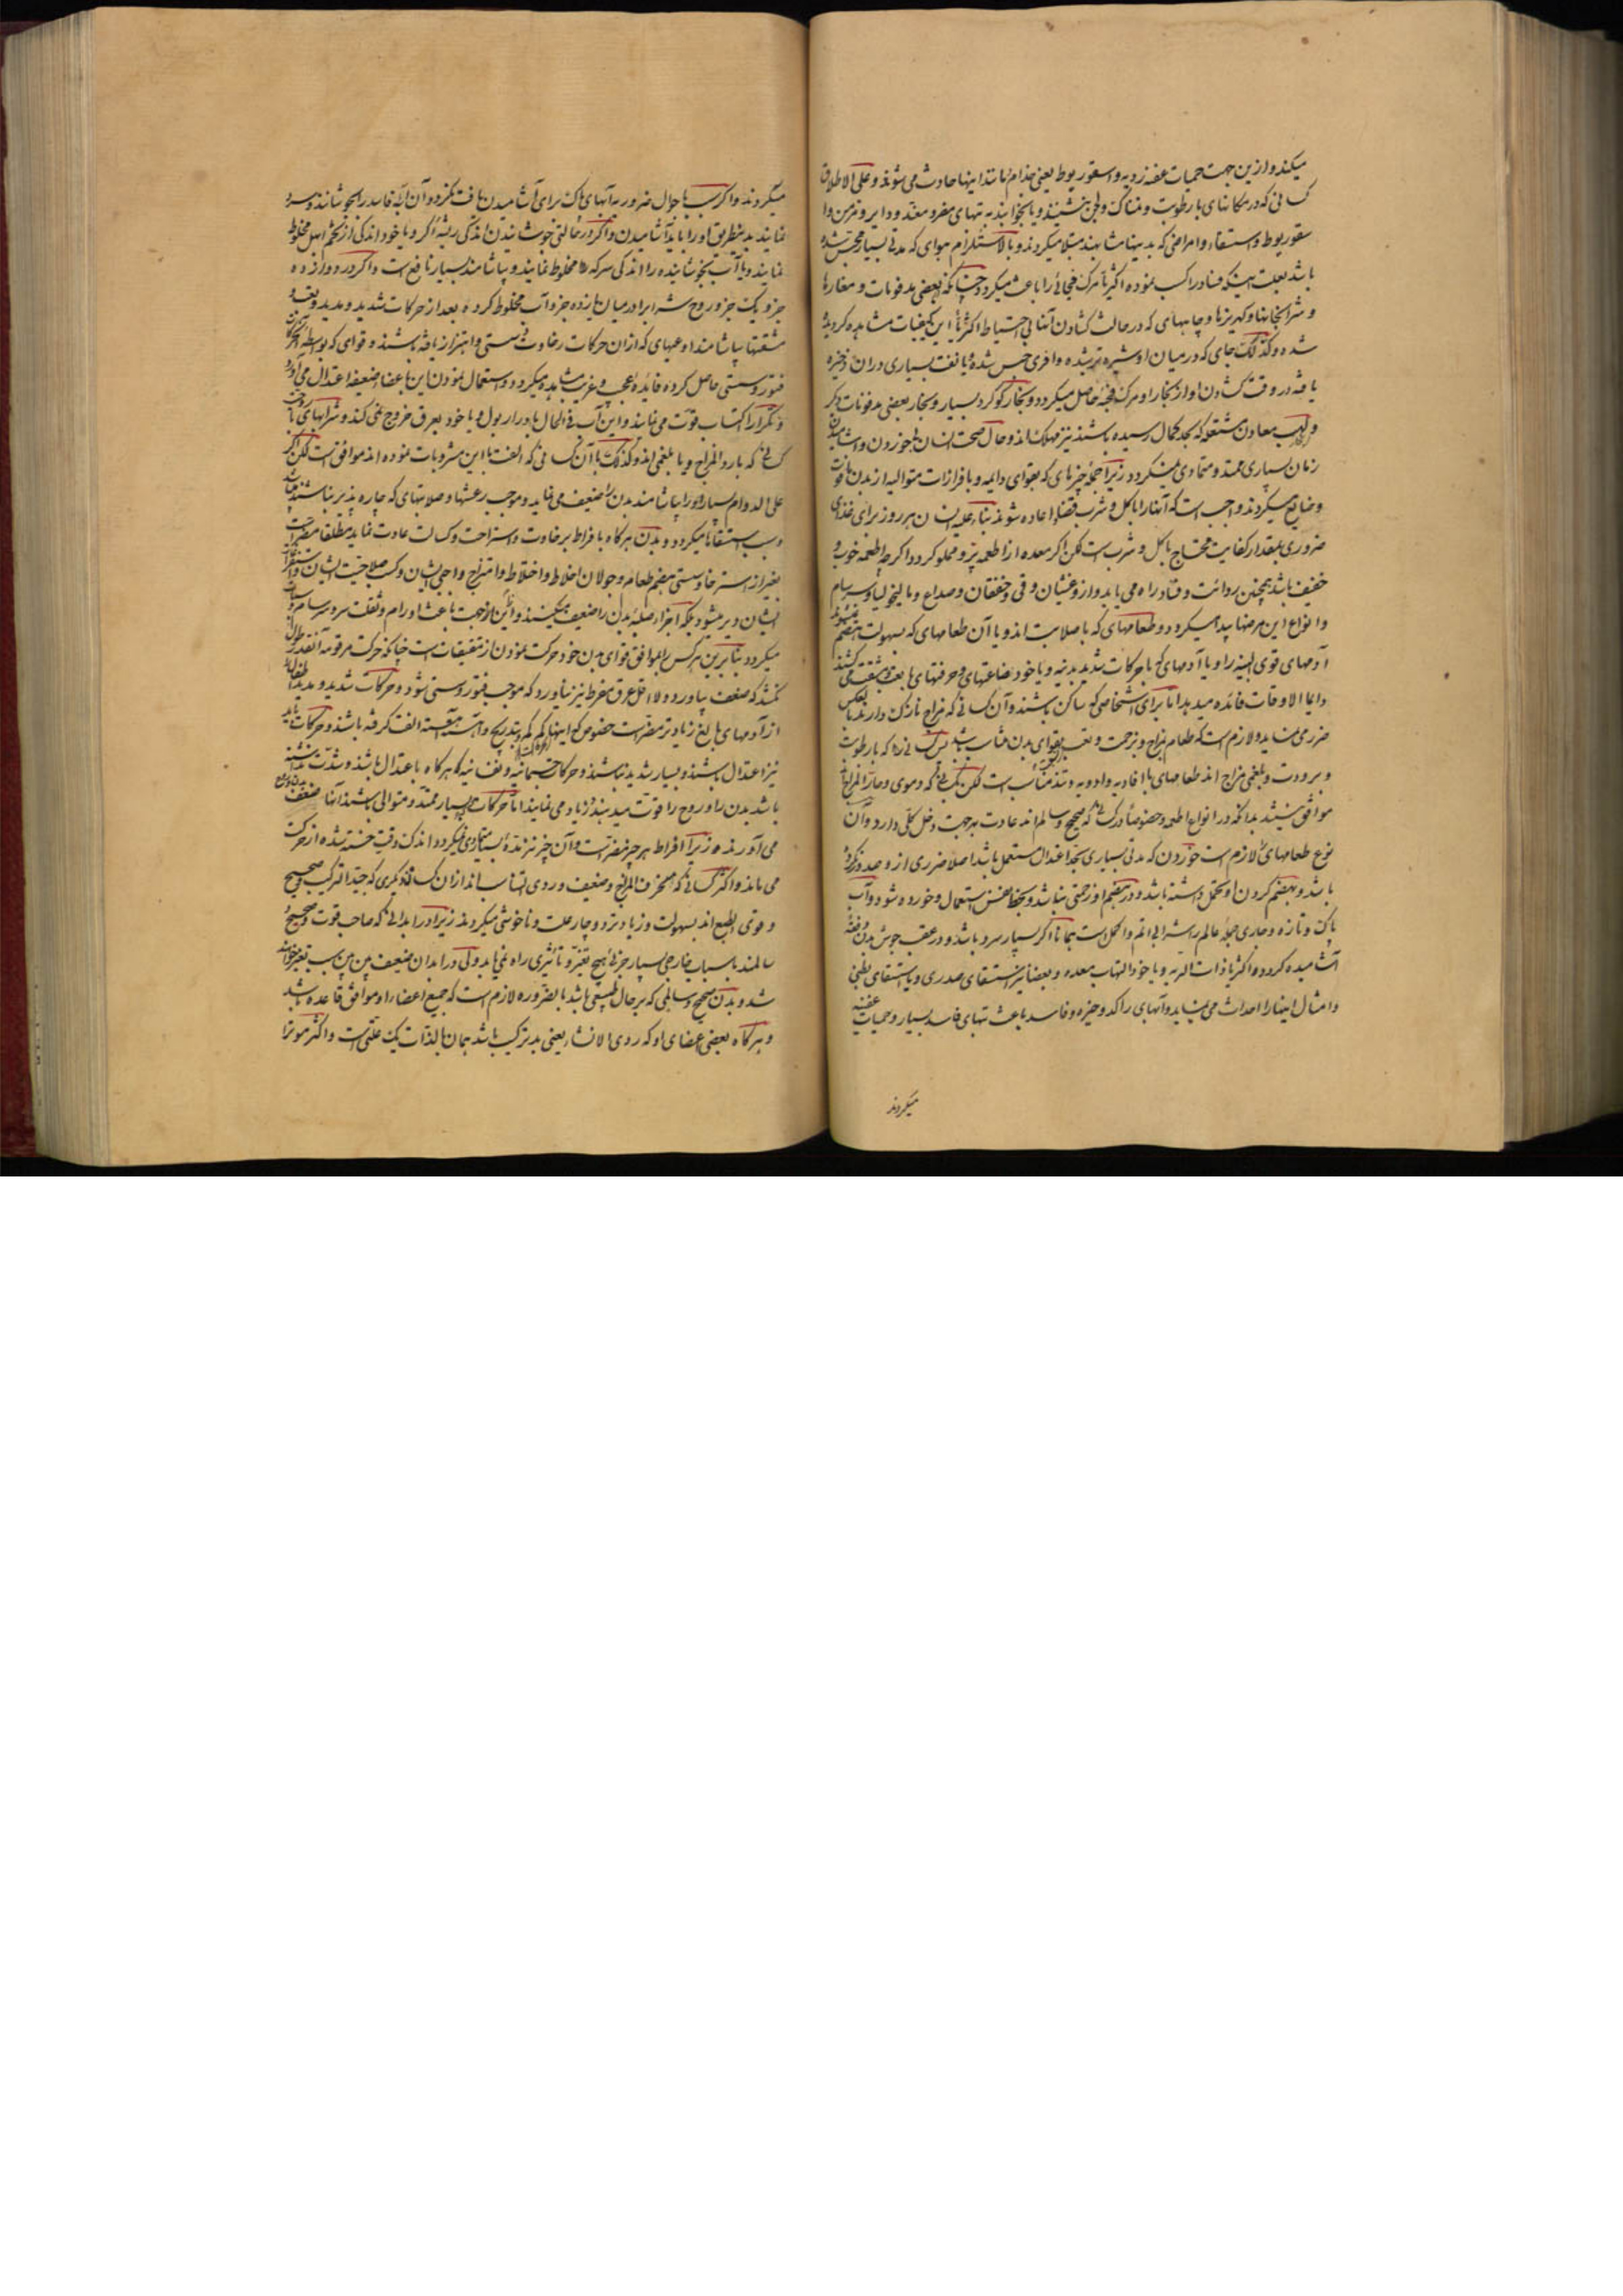 میکند و ازین جهت حمیات عفنه ردیه و اسقوربوط یعنی جذام مانند اینها حادث می شوند و علی الاطلاق
کسانی که در مکانهای با رطوبت و نمناک و لجن بنشینند و یا بخوابند به تبهای
سقوربوط و استسقاء و امراضی که بدینها مشابهند مبتلا میکردند و بالاستلزام هوای که مدتی بسیار محتبس شده
باشد بعلت اینکه فساد را کسب نموده اکثریا مرک فجائی را باعث میکردد چنانکه بعضی مدفونات و مغارها
و شرابخانها و کهریزها و چاههای که در حالت کشادن آنها بی احتیاط اکثریا این کیفیات مشاهده کردیده
شده و کذلک جای که در میان او شیره ترشده وافری حبس شده یا نفت بسیاری در آن ذخیره
یافته در وقت کشادن او از بخار او مرک فجئه حاصل میکردد و بخار کوکرد بسیار و بخار بعضی مدفونات دیکر
و لهب معادن مشتعله که بحد کمال رسیده باشند نیز مهلک اند و حال صحت انسان بی خوردن و آشامیدن
زمان بسیاری ممتد و متمادی نمیکردد زیرا جمله چیزهای که بقوای دایمه و با فرازات متوالیه از بدن فانی
و ضایع میکردند واجب است که آنها را با کل و شرب اعاده شوند بناء علیه انسان هر روز برای غذای
ضروری بمقدار کفایت محتاج باکل و شرب است لکن اکر معده از اطعمه پر و مملو کردد اکر چه اطعمه خوب و
خفیف باشد همچنین بردائت و فساد راه می یابد و از و غثیان و قی و خفقان و صداع و مالیخولیا و سرسام
و انواع این مرضها پیدا میکردد و طعامهای که با صلابت اند و یا آن طعامهای که بسهولت هضم نمیشوند
آدمهای قوی البنیه را و یا آدمهای که با حرکات شدید بدنیه و یا خود بضاعتهای و حرفتهای با تعب و مشقت می کشند
دایما الاوقات فائده میدهد اما برای اشخاصی که ساکن باشند و آن کسانی که مزاج نازک دارند بالعکس
ضرر می نماید و لازم است که طعام بمزاج و بزحمت و تعب بقوای بدن مناسب باشد پس کسانی را که با رطوبت
و برودت و بلغمی مزاج اند طعامهای با افاویه و ادویه و تند مناسب است لکن بکسانی که دموی و حار المزاج اند
موافق نیستند بدانکه در انواع اطعمه و خصوصا در کسانی که صحیح و سالم اند عادت بهر جهت دخل کلی دارد و آن
نوع طعامهای لازم است خوردن که مدتی بسیاری بحد اعتدال مستعمل باشد اصلا ضرری از و صدور نکرده
باشد و بهضم کردن او تحمل داشته باشد و در هضم او زحمتی نباشد و بحظ نفس استعمال و خورده شود و آب
پاک و تازه و جاری جمله عالم را شراب اتم و اکمل است همانا اکر بسیار سرد باشد و در عقب جوش بدن دفعةً
آشامیده کردد اکثریا ذات الریه و یا خود التهاب معده و بعضا نیز استسقای صدری و یا استسقای بطنی
و امثال اینها را احداث می نماید و آبهای راکد و فاسد باعث تبهای فاسد بسیار و حمیات عفنیه
میکردند
میکردند و اکر بسبب احوال ضروریه آبهای پاک برای آشامیدن یافت نکردد آن آب فاسد را بجوشانند و سرد
نمایند بدینطریق او را باید آشامیدن و اکر در حالتی جوشانیدن اندکی ریشه اکر و یا خود اندکی از تخم اهل مخلوط
نمایند و با آب بجوشانیده را اندکی سرکه مخلوط نمایند و بیاشامند بسیار نافع است و اکر در دوازده
جزو یک جزو روح شراب را در میان یازده جزو آب مخلوط کرده بعد از حرکات شدید و مدید و تعب و
مشقتها بیاشامند اوعیهای که از آن حرکات رخاوت و سستی و اهتزاز یافته باشند و قوای که بواسطه آن حرکات
فتور و سستی حاصل کرده فائده عجیب و غریب مشاهده میکردد و استعمال نمودن این باعضاء ضعیفه اعتدال می آورد
و تکرارا کسب قوت می نمایند و این آب فی الحال بادرار بول و یا خود بعرق خروج نمی کند و شرابهای با
کسانی که بارد المزاج و یا بلغمی اند و کذلک با آن کسانی که الفت با این مشروبات نموده اند موافق است لکن اکر
علی الدوام بسیار او را بیاشامند بدن را ضعیف می نماید و موجب رعشها و صلابتهای که چاره پذیر نباشند میباشد
و سبب استسقاها میکردد و بدن هر کاه بافراط برخاوت و استراحت و کسالت عادت نماید مطلقا مضر است
بغیر از استرخا و سستی هضم طعام و جولان اخلاط و اختلاط و امتزاج واجبی ایشان و کسب صلاحیت ایشان و استفراغ
ایشان دیر میشود بلکه اجزاء صلبه بدن را ضعیف میکنند و ازین جهت باعث اورام و ثقلت سر و سرسام
میکردد بنابرین هر کس را موافق قوای بدن خود حرکت نمودن از متفقیات است چنانکه حرکت مرقومه آنقدر طول
نکشد که ضعف بیاورد و لا اقل عرق مفرط نیز نیاورد که موجب فتور و سستی شود و حرکات شدید و مدید اطفال را
از آدمهای بالغ زیادتر مضر است خصوص که اینها کم کم و بتدریج و آهسته آهسته الفت نکرفته باشند و حرکات باید
نیز اعتدال باشند و بسیار شدید نباشند و حرکات جسمانیه و نفسانیه هر کاه باعتدال باشد و شدت نداشته
باشد بدن را و روح را قوت میدهند و زیاد می نمایند اما حرکات بسیار ممتد و متوالی باشند آنها ضعف
می آورند زیرا افراط هر چیز مضر است و آن چیز نیز مدتی بسیار متمادی نمیکردد اندک وقت خسته شده از حرکت
می ماند و اکثر کسانی که منحرف المزاج و ضعیف و ردی التناسب اند از آن کسان دیکری که جید الترکیب و صحیح
و قوی الطبع اند بسهولت و زیادتر دوچار علت و ناخوشی میکردند زیرا در ابدانی که صاحب قوت و صحیح و
سالمند باسباب خارجی بسیار جزئی هیچ تغیر و تأثیری راه نمی یابد ولی در ابدان ضعیف این سبب تغیر خواهد
شد و بدن صحیح و سالمی که بر حال طبیعی باشد بالضروره لازم است که جمیع اعضاء او موافق قاعده باشد
و هر کاه بعضی اعضای او که ردی الانشاء یعنی بد ترکیب باشد همان بالذات یک علتی است و اکثر موثرا